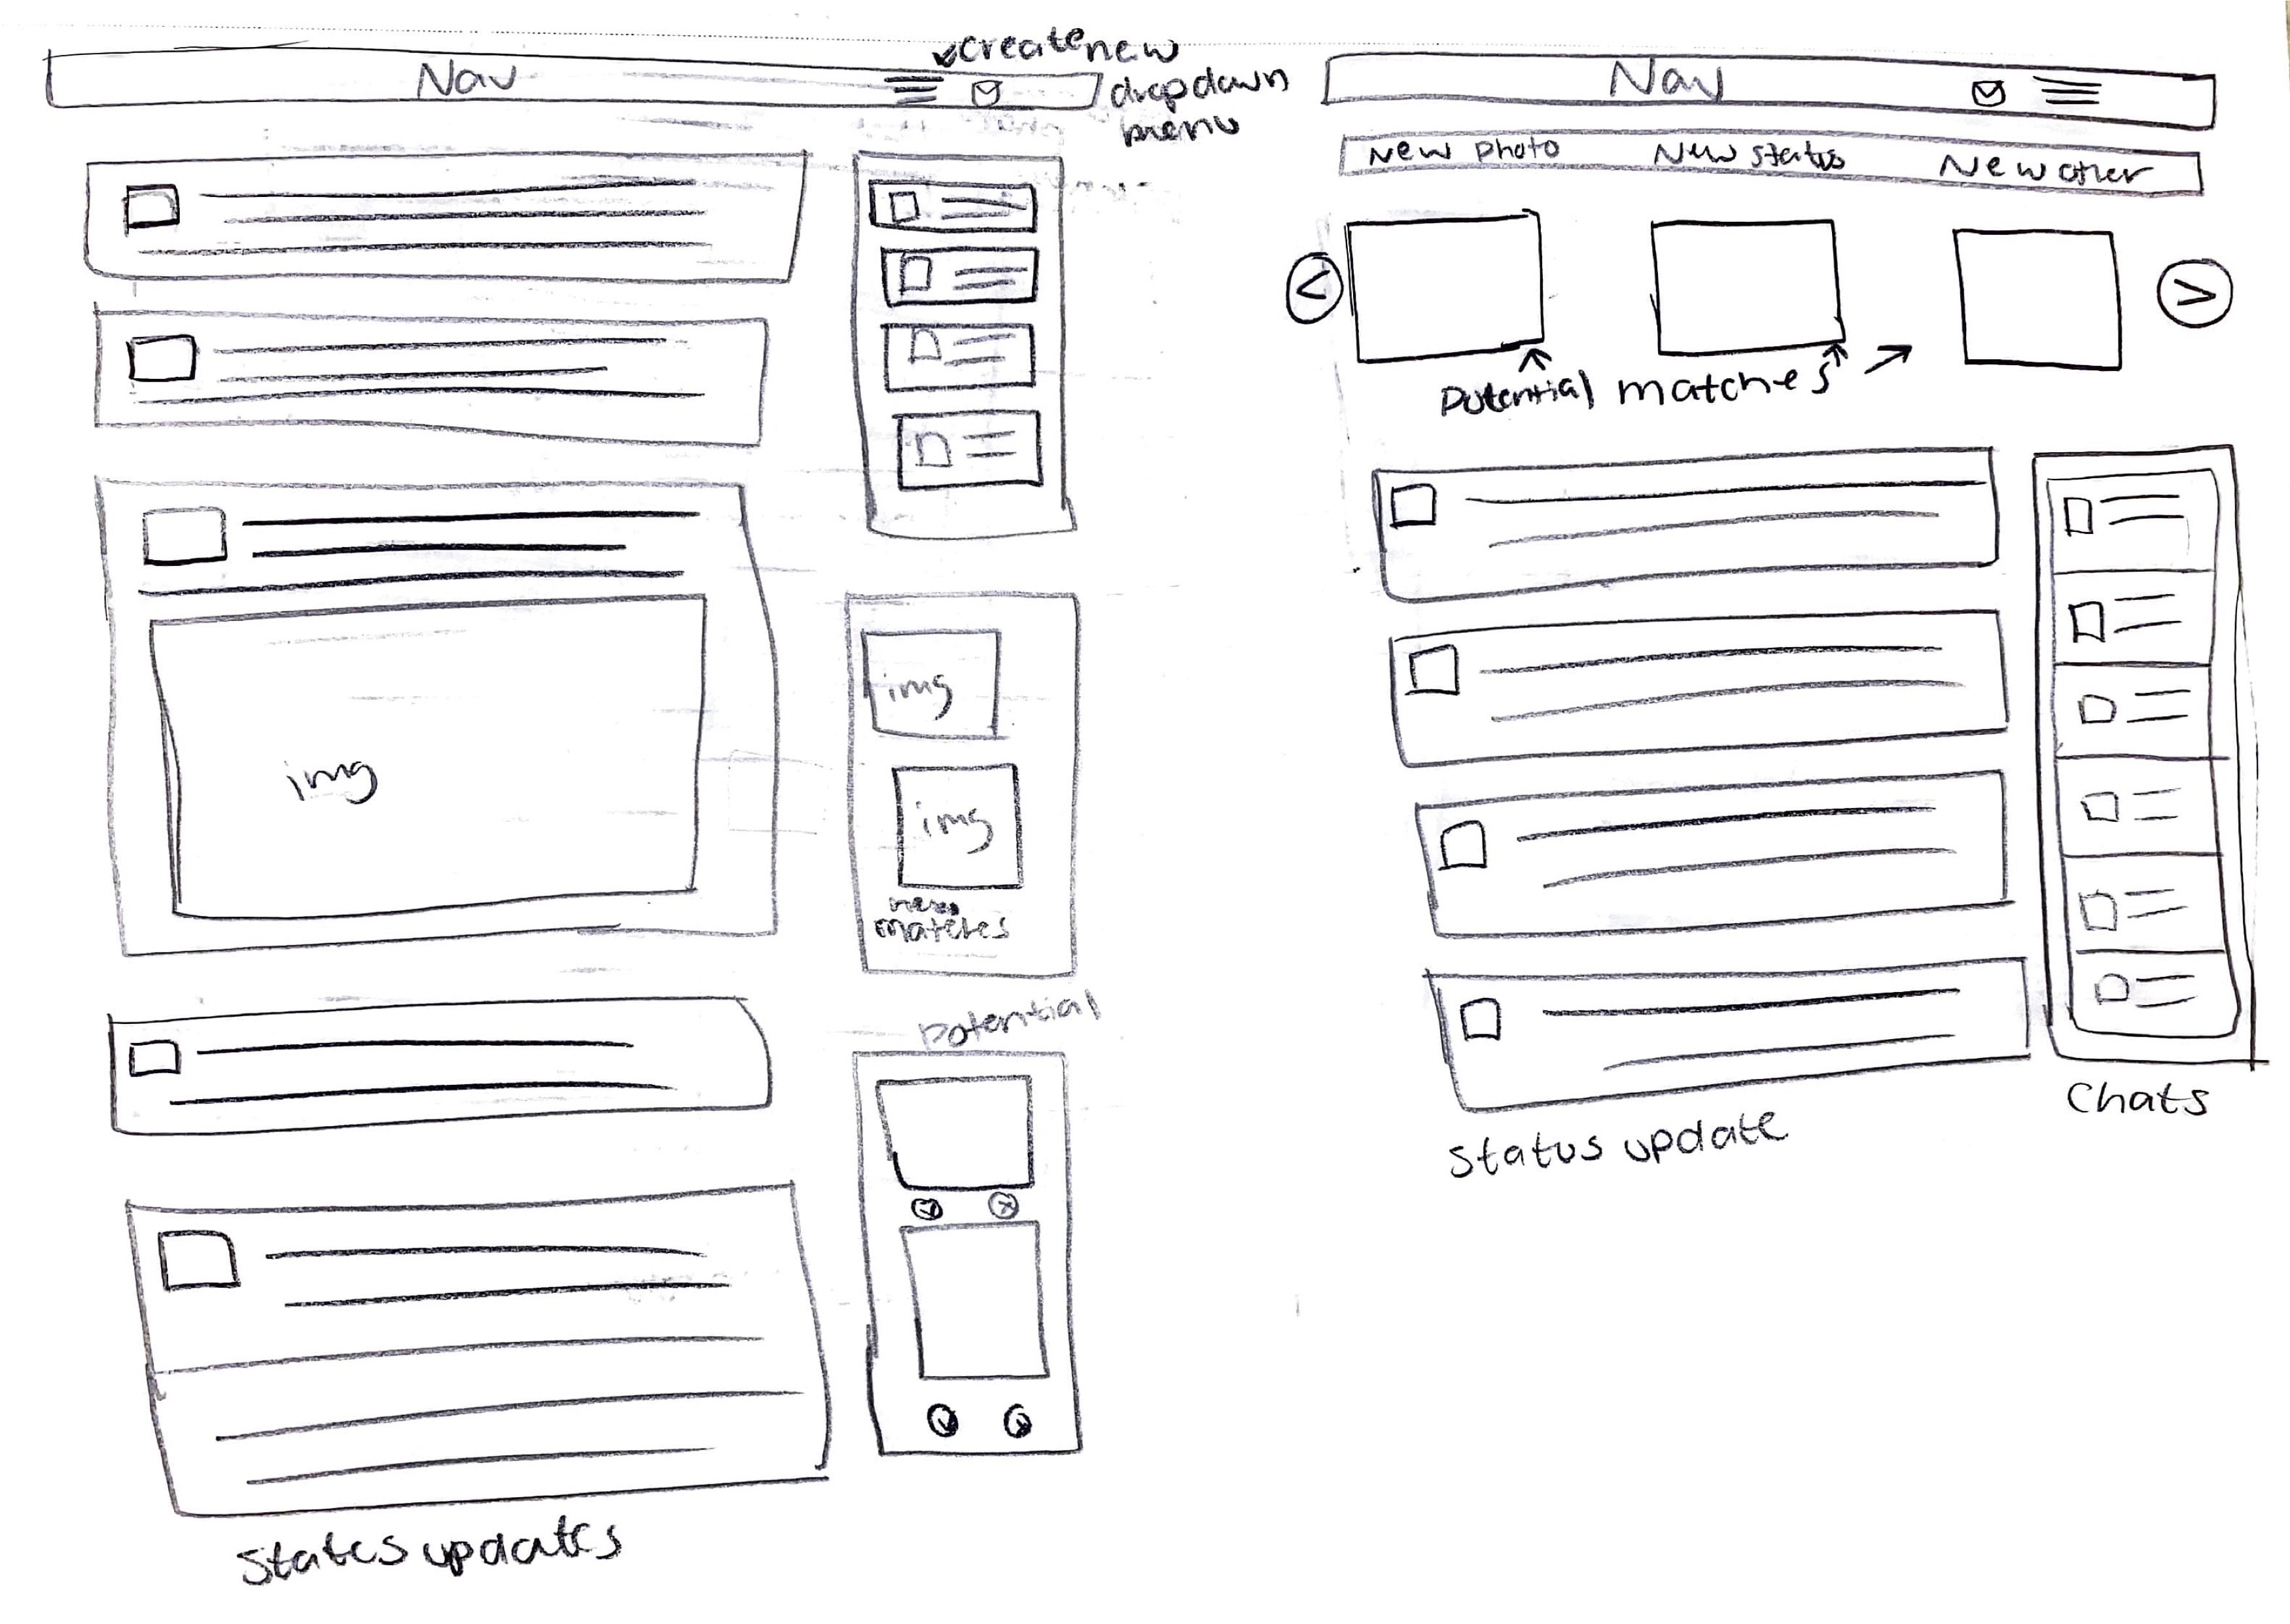 Nav
create new
dropdown
menu
img
img
img
new
matches
Potential
States updates
Nav
New photo New status New other
Potential matches
Status update
Chats